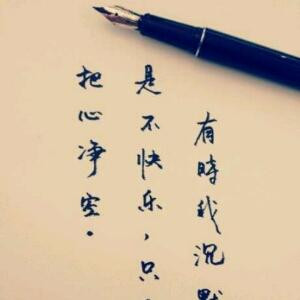 有時我沉默
是不快乐，只
把心净空。